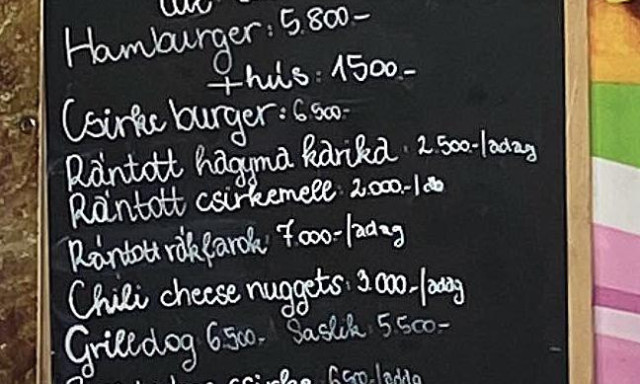 Hamburger: 5.800-
+hús: 1500.-
Csirke burger: 6.500-
Rántott hagyma karika: 2.500.-/adag
Rántott csirkemell: 2.000.-/db
Rántott rákfarok: 7000-/adag
Chili cheese nuggets: 3.000.-/adag
Grilldog 6.500.- Saslik: 5.500-
csirke 6500-/adag